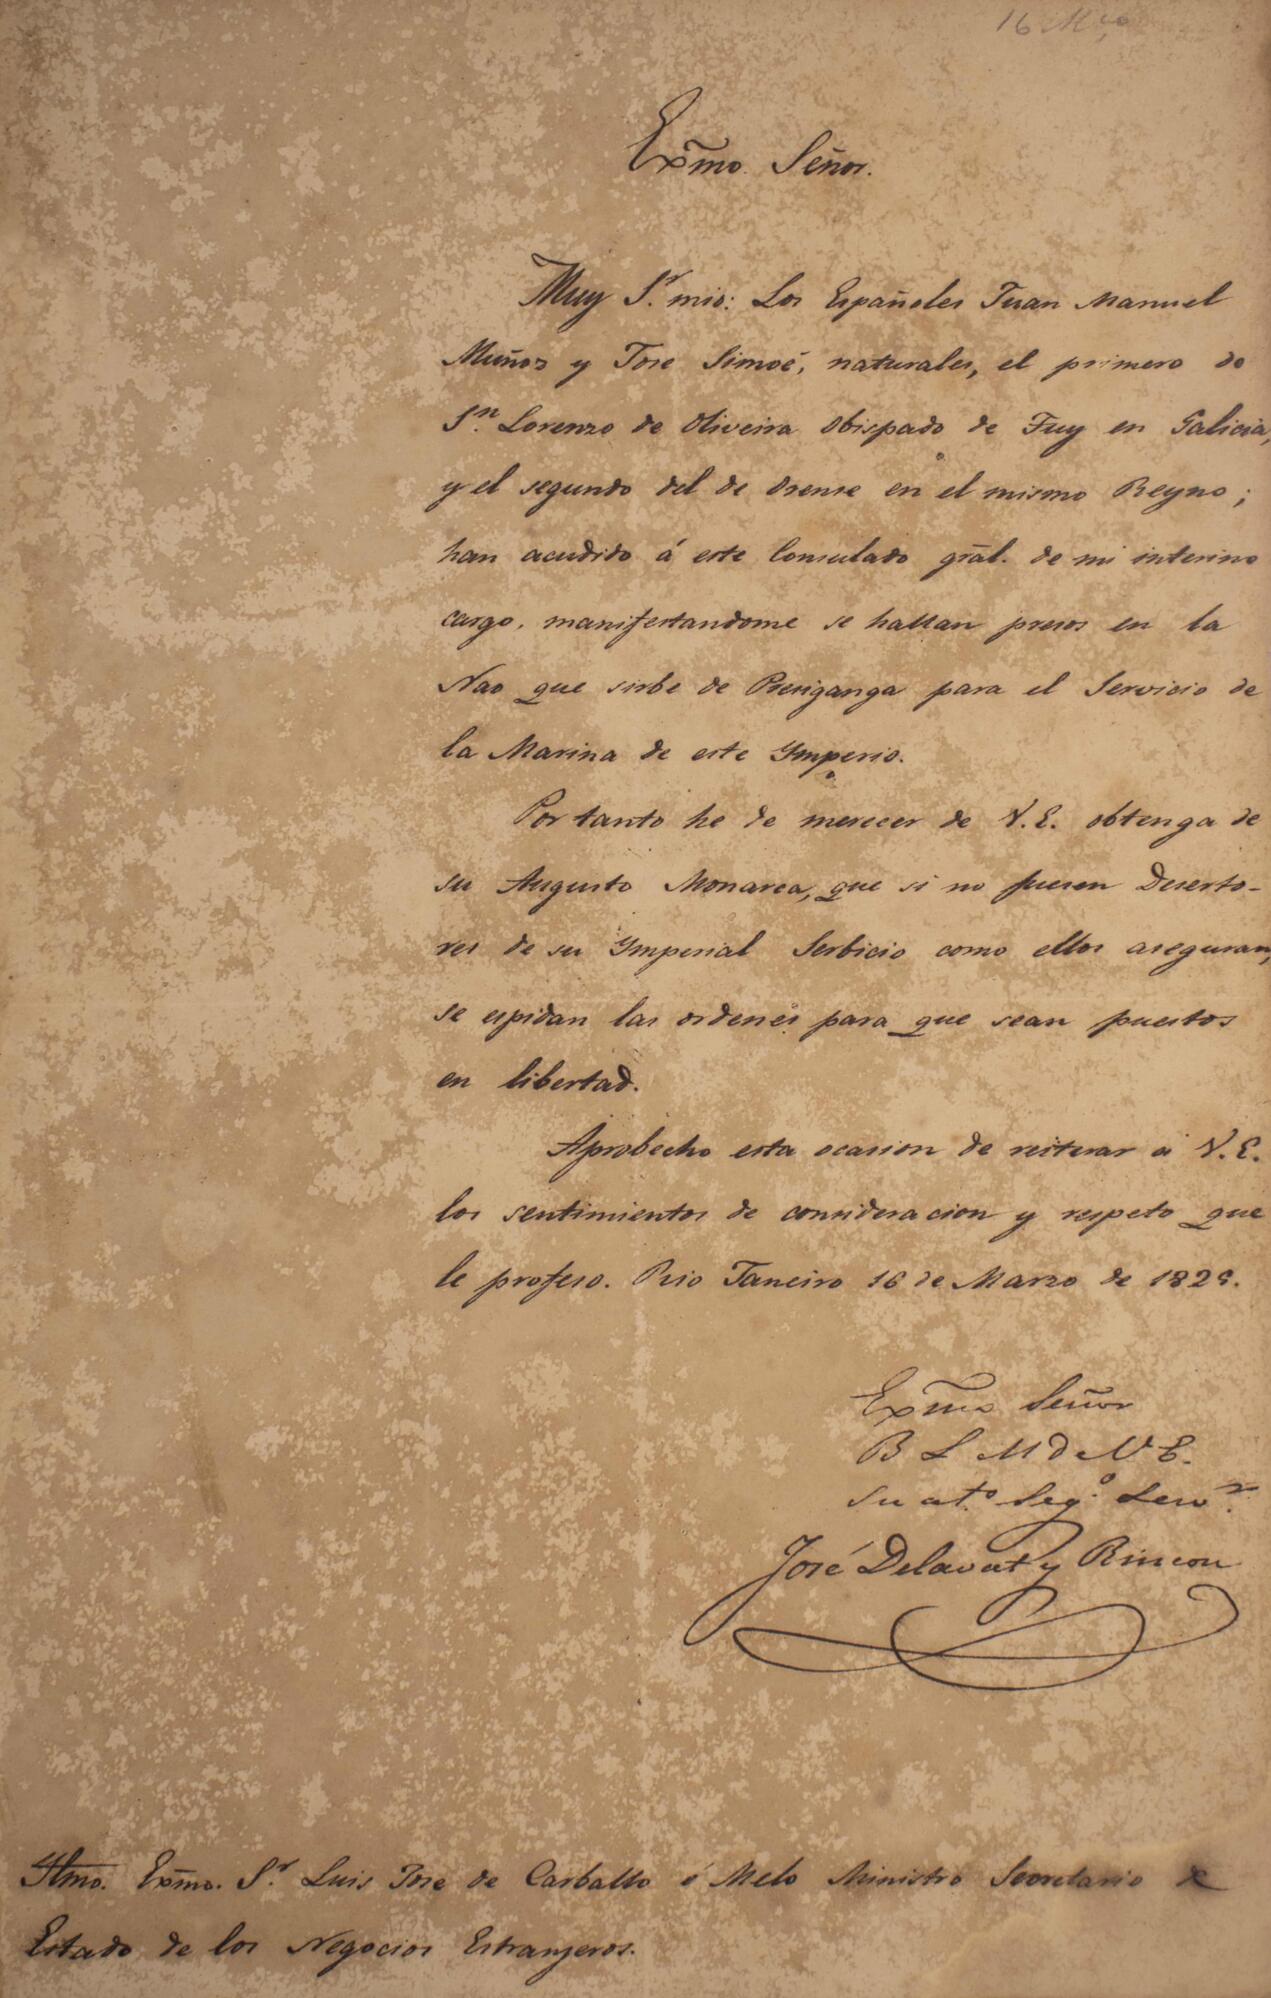 16 Mço
Exmo. Señor.
Muy Sr. mio: Los Españoles Juan Manuel
Muñoz y Jose Simoé, naturales, el primero de
Sn. Lorenzo de Oliveira Obispado de Tuy en Galicia,
y el segundo del de Orense en el mismo Reyno;
han acudido á este Consulado gral. de mi interino
cargo, manifestandome se hallan presos en la
Nao que sirbe de Presiganga para el Servicio de
la Marina de este Ymperio.
Por tanto he de merecer de V.E. obtenga de
su Augusto Monarca, que si no fuesen Deserto-
res de su Ymperial Serbicio como ellos aseguran,
se espidan las ordenes para que sean puestos
en libertad.
Aprobecho esta ocasion de reiterar á V.E.
los sentimientos de consideracion y respeto que
le profeso. Rio Janeiro 16 de Marzo de 1825.
Exmo Señor
B L M d V E.
su at.o Seg.o Serv.r
José Delavat y Rincon
Yllmo. Exmo. Sr. Luis Jose de Carballo é Melo Ministro Secretario de
Estado de los Negocios Estranjeros.